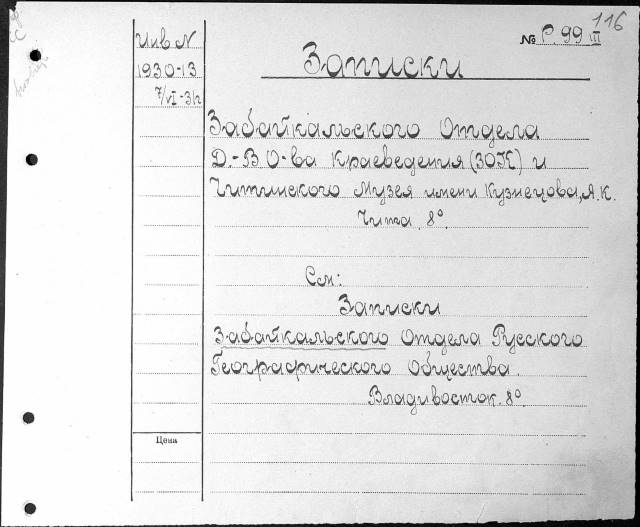 116
№ P. 99 III
Инв N
1930-13
7/VI-31г
Записки
Забайкальского Отдела
Д.-В О-ва Краеведения (ЗОК) и
Читинского Музея имени Кузнецова, А.К.
Чита. 8º
См:
Записки
Забайкальского Отдела Русского
Географического Общества.
Владивосток. 8º
Цена